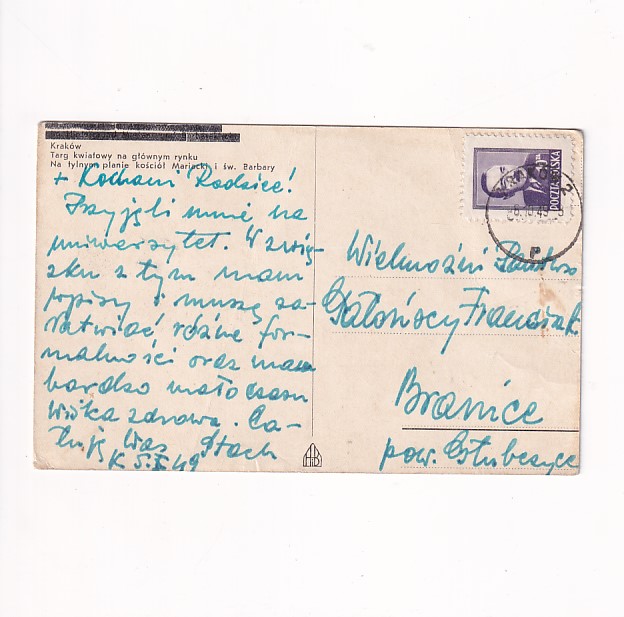 Kraków
Targ kwiatowy na głównym rynku
Na tylnym planie kościół Mariacki i św. Barbary
+ Kochani Rodzice!
Przyjęli mnie na
uniwersytet. W zwią-
zku z tym mam
popisy i muszę za-
łatwiać różne for-
malności oraz mam
bardzo mało czasu
zdrowa. Ca-
łuję Was Stach
K 5.X.49
POCZTA POLSKA
2
Wielmożni Państwo
Gałońscy Franciszk.
Branice
pow. Głubczyce